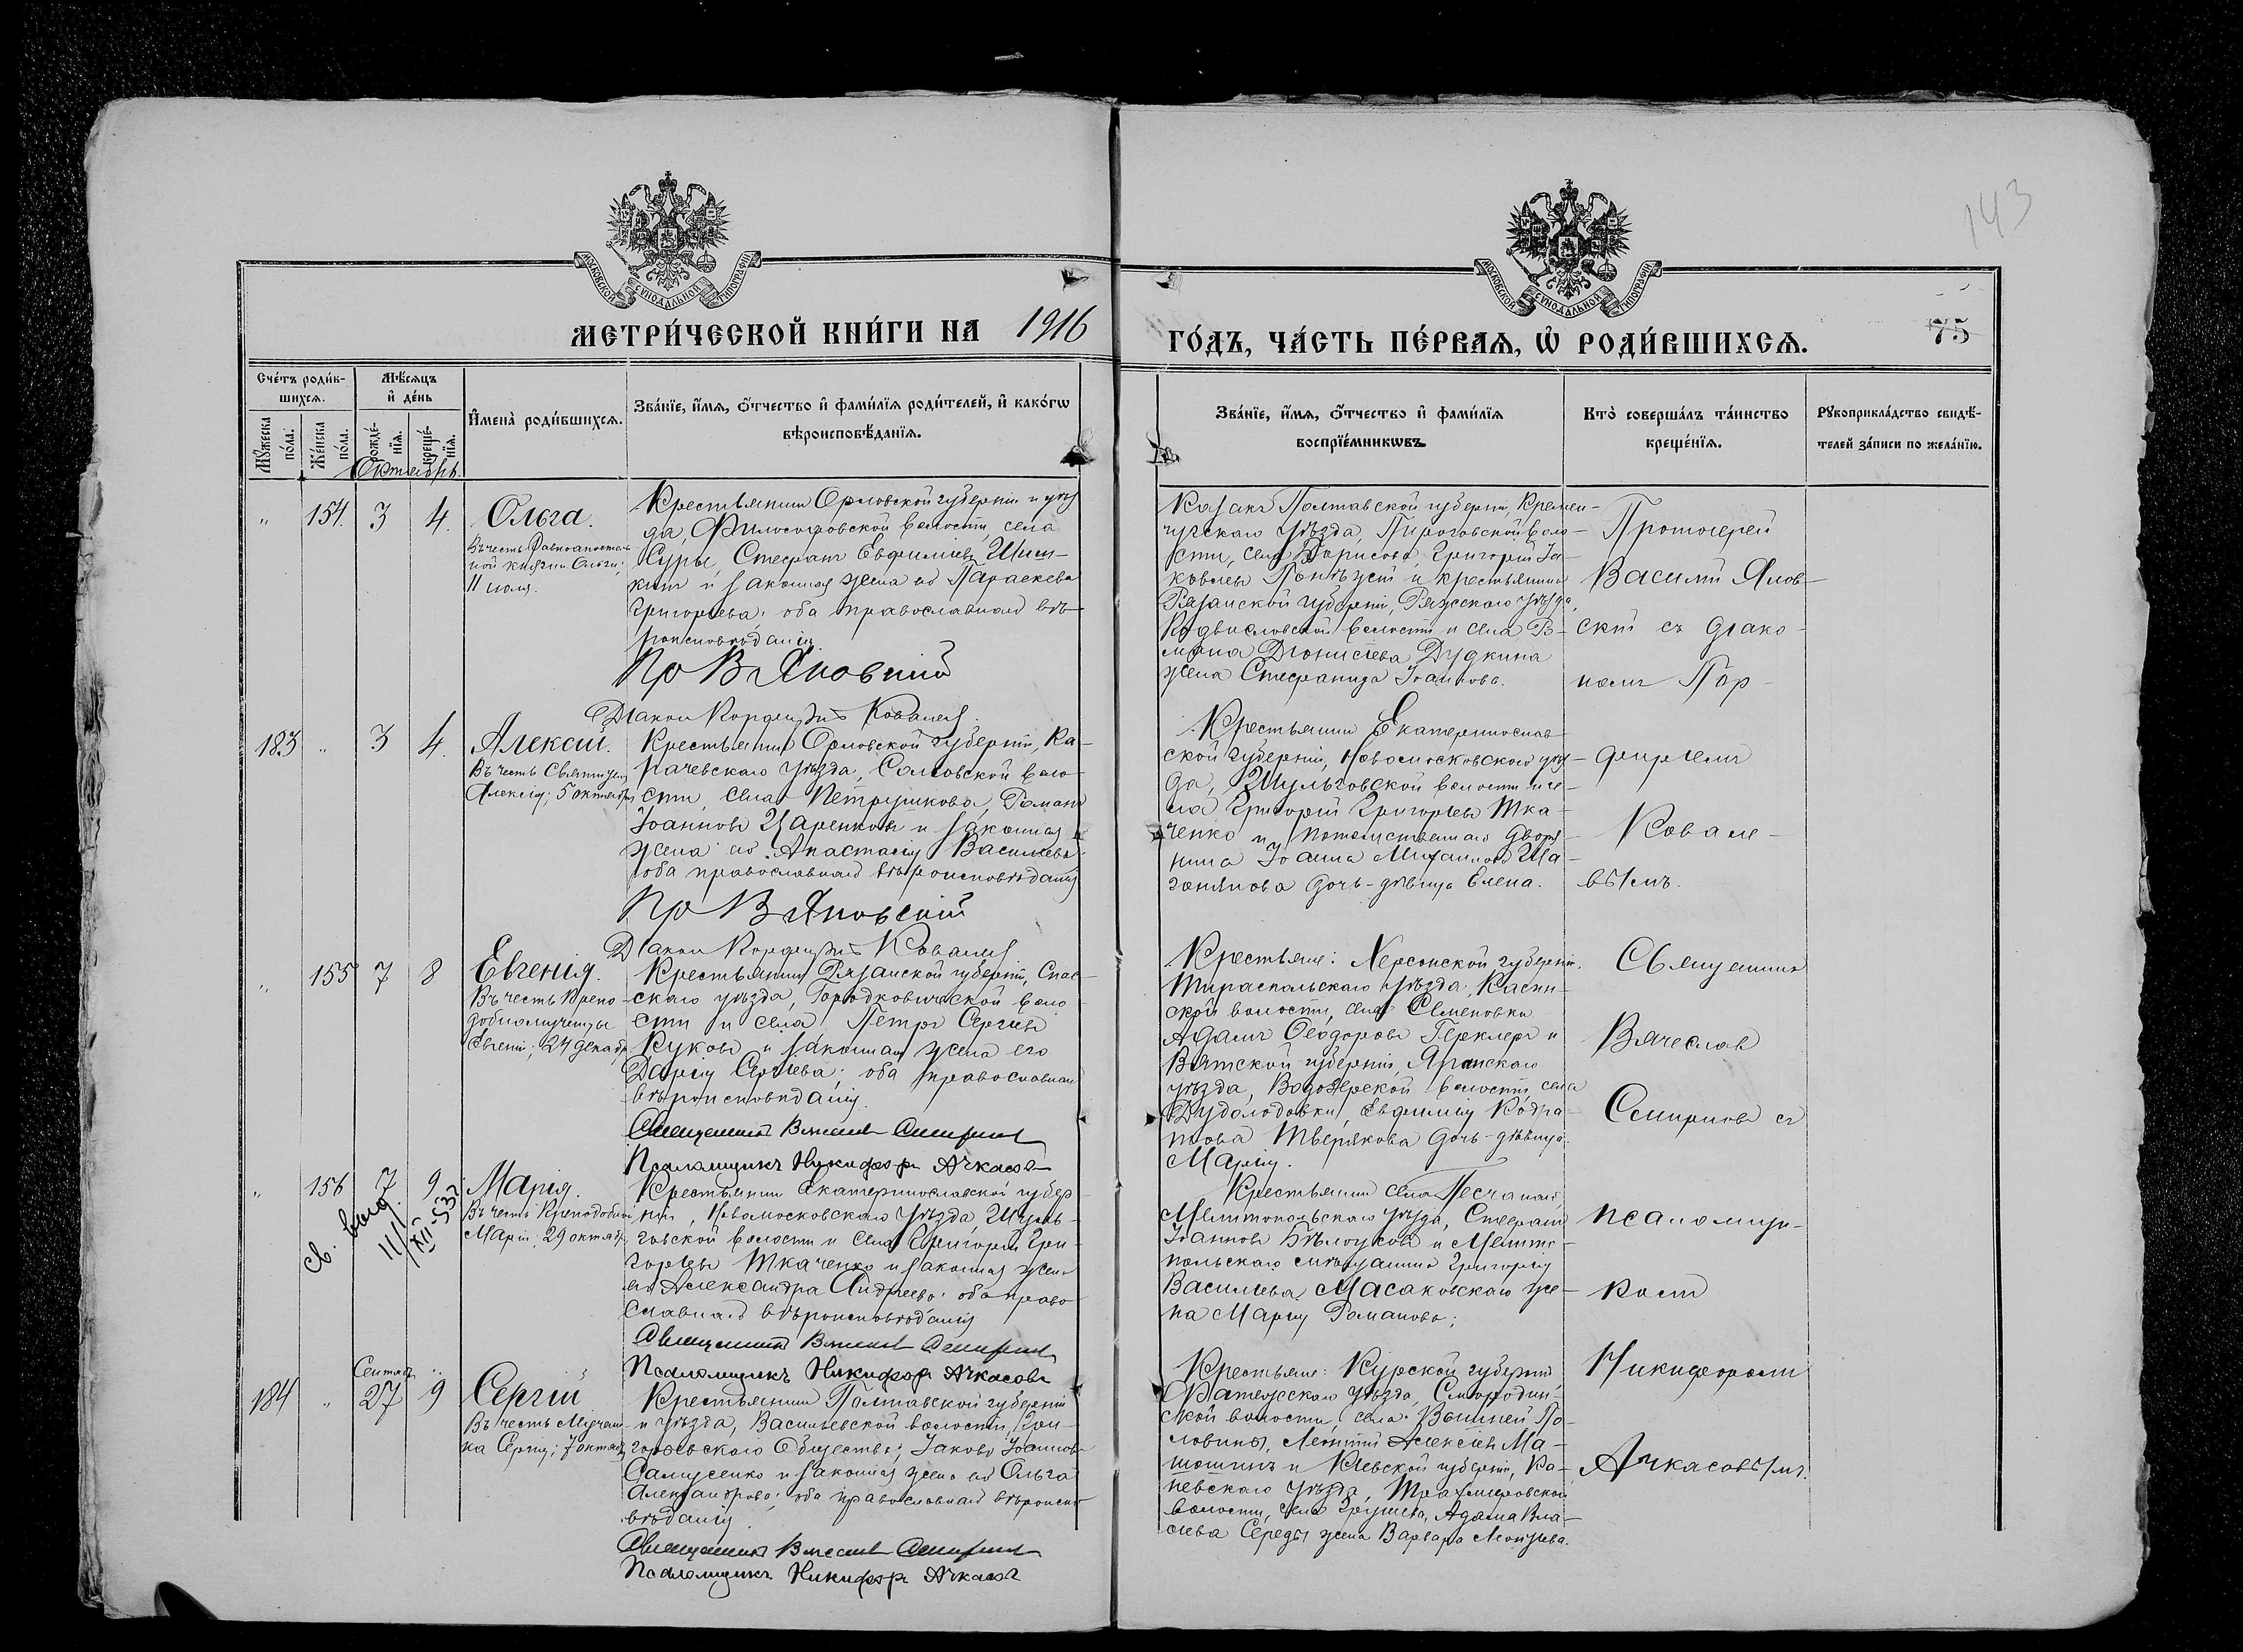 143
МОСКОВСКОЙ СѴНОДАЛЬНОЙ ТИПОГРАФІИ
МОСКОВСКОЙ СѴНОДАЛЬНОЙ ТИПОГРАФІИ
МЕТРИ́ЧЕСКОЙ КНИ́ГИ НА 1916
ГО́ДЪ, ЧА́СТЬ ПЕ́РВАѦ, Ѡ҆ РОДИ́ВШИХСѦ.
75
Сче́тъ роди́в-
шихсѧ.
Мꙋ́жеска по́ла.
Же́нска по́ла.
Мѣ́сѧцъ и҆ де́нь
рожде́-нїѧ.
креще́-нїѧ.
И҆мена̀ роди́вшихсѧ.
Зва́нїе, и҆́мѧ, ѻ҆́тчество и҆ фами́лїѧ роди́телей, и҆ како́гѡ
вѣроисповѣ́данїѧ.
Зва́нїе, и҆́мѧ, ѻ҆́тчество и҆ фами́лїѧ
воспрїе́мникѡвъ
Кто̀ соверша́лъ та́инство
креще́нїѧ.
Рꙋкоприкла́дство свидѣ́-
телей за́писи по жела́нїю.
Октябрь.
" 154. 3 4. Ольга.
Въ честь Равноапостоль
ной княгини Ольги;
11 іюля.
Крестьянинъ Орловской губерніи и уѣз
да, Философовской волости, села
Суры, Стефанъ Евфиміевъ
и законная жена его Параскева
Григорьева; оба православнаго вѣ-
роисповѣданія.
Пр В Яновскій
Діаконъ Ковалевъ.
Казакъ Полтавской губерніи, Кремен-
чугскаго уѣзда, Пироговской воло-
сти, села Борисова, Григорій Іа-
ковлевъ и крестьянина
Рязанской губерніи, Ряжскаго уѣзда,
волости и села
Діонисіева Дудкина
жена Стефанида Іоаннова.
Протоіерей
Василій Янов-
скій съ діако-
номъ Пор-
фиріемъ
Ковале-
вымъ.
183 " 3 4. Алексій.
Въ честь Святителя
Алексія; 5 октября
Крестьянинъ Орловской губерніи, Ка-
рачевскаго уѣзда, воло-
сти, села Петрушкова, Романъ
Іоанновъ Царенковъ и законная
жена его Анастасія Васильева
оба православнаго вѣроисповѣданія
Пр В Яновскій
Діаконъ Ковалевъ
Крестьянинъ Екатеринослав-
ской губерніи, Новомосковскаго уѣз-
да, Шульговской волости и се-
ла Григорій Григорьевъ Тка-
ченко и потомственнаго дворя-
нина Іоанна Михаилова Ша-
дочь-дѣвица Елена.
" 155 7 8 Евгенія.
Въ честь Препо-
добномученицы
Евгеніи; 24 декабря
Крестьянинъ Рязанской губерніи, Спас-
скаго уѣзда, Городковической воло-
сти и села Петръ Сергіевъ
Жуковъ и законная жена его
Дарія Сергіева; оба православнаго
вѣроисповѣданія.
Священникъ Вячеславъ Смирновъ
Псаломщикъ Никифоръ Ачкасовъ
Крестьяне: Херсонской губерніи,
Тираспольскаго уѣзда,
волости, села Семеновки
Адамъ Ѳеодоровъ и
Вятской губерніи, Яранскаго
уѣзда, волости, села
Евфимія Кодра-
това Тверякова дочь-дѣвица
Марія.
Священникъ
Вячеславъ
Смирновъ съ
псаломщи-
комъ
Никифоромъ
Ачкасовымъ.
" 156 7 9 Марія.
Св. выд.
11/XII-532
Въ честь Преподобной
Маріи; 29 октября
Крестьянинъ Екатеринославской губер
ніи, Новомосковскаго уѣзда, Шуль-
говской волости и села Григорій Гри-
горьевъ Ткаченко и законная жена
его Александра Андреева; оба право
славнаго вѣроисповѣданія
Священникъ Вячеславъ Смирновъ
Псаломщикъ Никифоръ Ачкасовъ
Крестьянинъ села Песчанаго,
Мелитопольскаго уѣзда, Стефанъ
Іоанновъ Бѣлоусовъ и Мелито-
польскаго мѣщанина Григорія
Васильева Масаковскаго же-
на Марія Романова;
184 " Сентябрь 27 9 Сергій
Въ честь Мучени-
ка Сергія; 7 октября
Крестьянинъ Полтавской губерніи
и уѣзда, Васильевской волости, Гри-
горьевскаго Общества, Іаковъ Іоанновъ
Самусенко и законная жена его Ольга
Александрова; оба православнаго вѣроиспо-
вѣданія.
Священникъ Вячеславъ Смирновъ
Псаломщикъ Никифоръ Ачкасовъ
Крестьяне: Курской губерніи
Фатежскаго уѣзда, Смородин-
ской волости, села По-
ловины, Леонтій Алексіевъ Ма-
шошинъ и Кіевской губерніи, Ка-
невскаго уѣзда, Трахтемировской
волости, села Грушева, Адама Вла-
сіева Середы жена Варвара